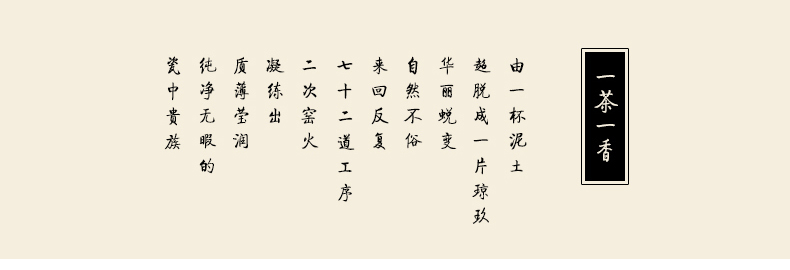 一茶一香
由一杯泥土
超脱成一片琼玖
华丽蜕变
自然不俗
来回反复
七十二道工序
二次窑火
凝练出
质薄莹润
纯净无暇的
瓷中贵族